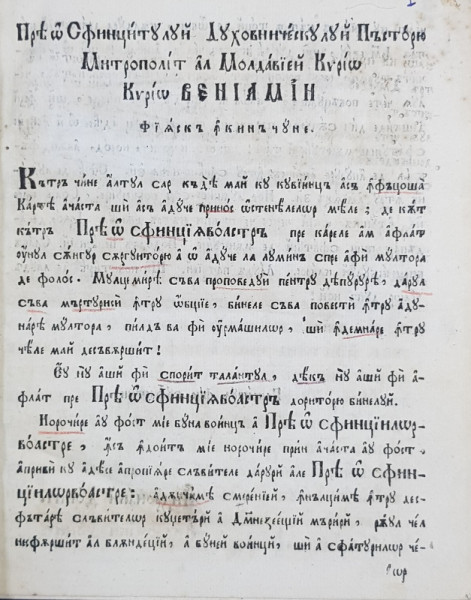 Прѣ ѡ Сфинцитꙋлꙋй Дꙋховническꙋлꙋй Пъсторю
Митрополи́т ал Молдавїей Кѵрїѡ
Кѵрїѡ ВЕНІАМІН
фїѧск ꙟкинъчꙋне.
Кътръ чине алтꙋл сар къде май кꙋ кꙋвїинцъ асъ ꙟфъцоша
Карте ачаста ши асъ адꙋче принос ѡстенелелѡр меле: де кѫт
кътръ Прѣ ѡ сфинцїѧвоастръ пре кареле ам афлат
ꙋнꙋл сѫнгꙋр сѫргꙋиторю а ѡ адꙋче ла лꙋминъ спре афи мꙋлтора
де фолос. Мꙋлцъмире съва проповедꙋи пентрꙋ дъпꙋрꙋре, дарꙋл
съва мъртꙋриси ꙟтрꙋ ѡбщїе, бинеле съва повести ꙟтрꙋ адꙋ-
наре мꙋлтора, пилдъ ва фи ꙋрмашилѡр, ши ꙟдемнаре ꙟтрꙋ
челе май десъвѫршит!
Єꙋ нꙋ аши фи спорит талантꙋл, дъкъ нꙋ аши фи а-
флат пре Прѣ ѡ сфинцїѧвоастръ дориторю бинелꙋй.
Норочире аꙋ фост мїе бꙋна воинцъ а Прѣ ѡ сфинцїилѡр-
воастре, ꙟсъ ꙟдоит мїе норочире прин ачаста аꙋ фост,
априви кꙋ адесе апропїѧре слъвителе дарꙋри але Прѣ ѡ сфин-
цїилѡрвоастре: адѫнчиме смеренїей, ꙟнълциме ꙟтрꙋ дес-
фътаре слъвителѡр кꙋцетъри а Дмнезеещїй мърири, рѫꙋл чел
несфѫршит ал блѫндецїй, а бꙋней воинци, ши а сфатꙋрилѡр че-
лѡр